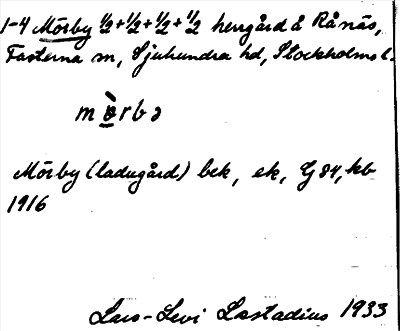 1-4 Mörby 1/2+1/2+1/2+1/2 herrgård å Rånäs,
Fasterna sn, Sjuhundra hd, Stockholms l.
mö̀rbə
Mörby (ladugård) bek, ek, G 84, kb
1916
Lars-Levi Læstadius 1933